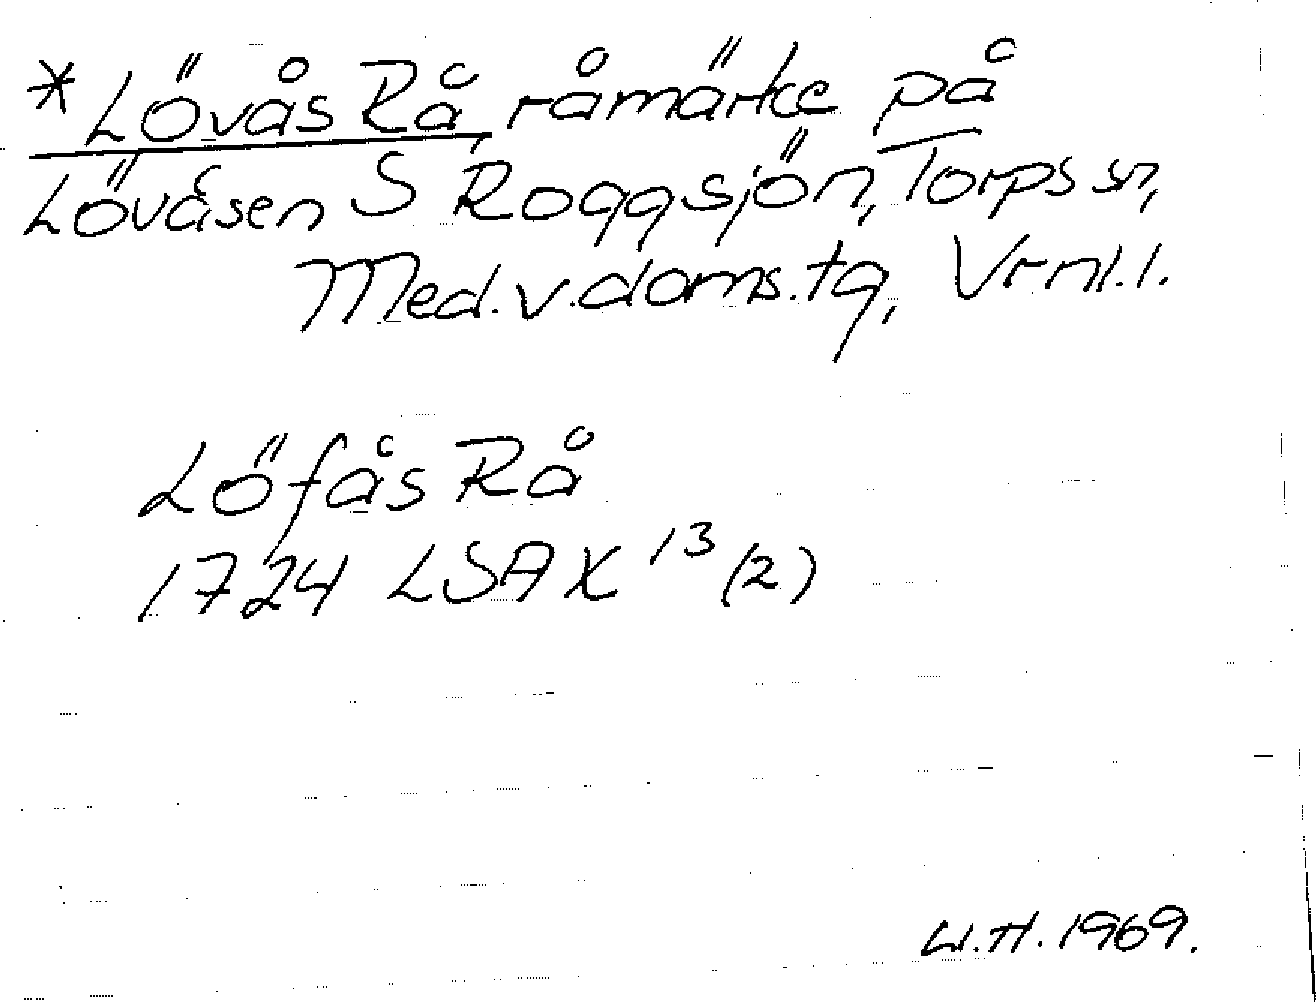 *Lövås Rå, råmärke på
Lövåsen S Roggsjön, Torps sn,
Med.v.doms.tg, Vrnl.l.
Löfås Rå
1724 LSA X 13 (2)
W.H. 1969.